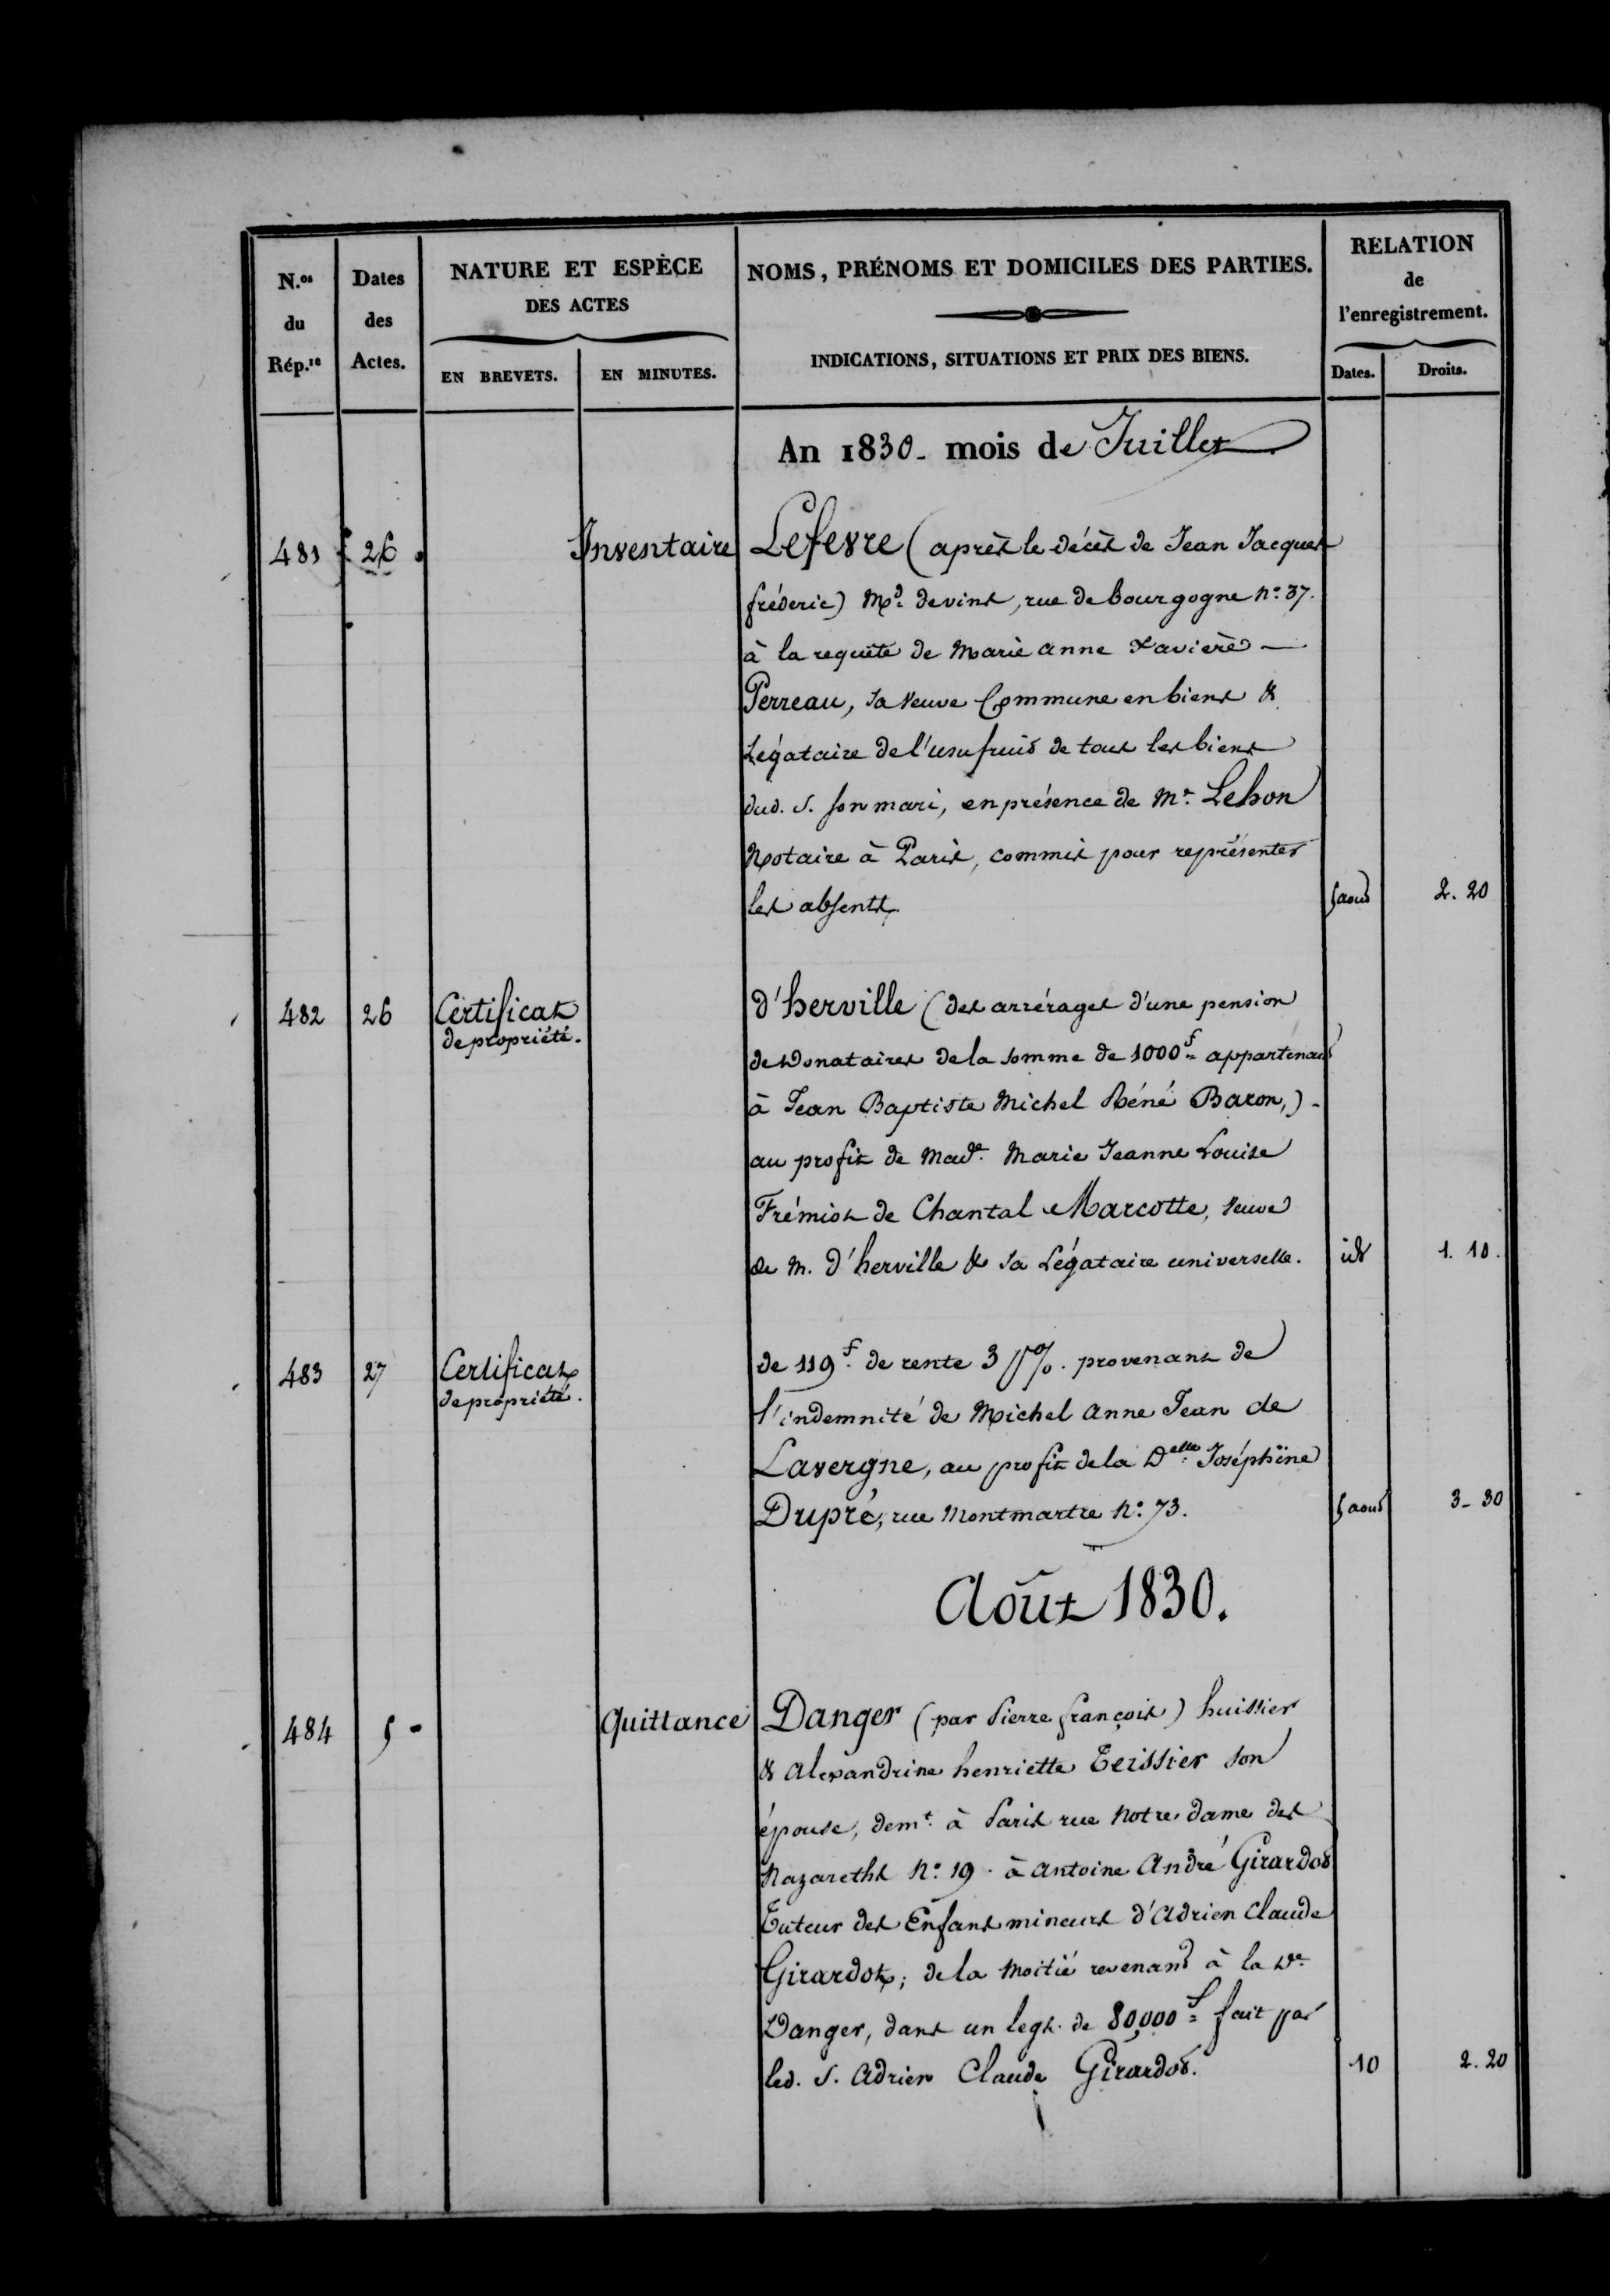 N.os du Rép.re
Dates des Actes.
NATURE ET ESPÈCE DES ACTES
EN BREVETS.
EN MINUTES.
NOMS, PRÉNOMS ET DOMICILES DES PARTIES.
INDICATIONS, SITUATIONS ET PRIX DES BIENS.
RELATION de l'enregistrement.
Dates.
Droits.
An 1830. mois de Juillet
481 26 Inventaire Lefevre (après le décès de Jean Jacques
fréderic) Md. de vins, rue de bourgogne No. 37.
à la requête de Marie anne Xavière —
Perreau, sa veuve Commune en biens &
Légataire de l'usufruit de tous les biens
dud. S. son mari, en présence de Me. Lehon
Notaire à Paris, commis pour représenter
les absents. 5 aout 2. 20
482 26 Certificat de propriété. d'herville (des arrérages d'une pension
de Donataires de la somme de 1000f. appartenant
à Jean Baptiste Michel Réné Baron,) -
au profit de Made. Marie Jeanne Louise
Frémiot de Chantal Marcotte, veuve
de M. d'herville & sa Légataire universelle. id 1. 10.
483 27 Certificat de propriété. de 119f. de rente 3 p%. provenant de
l'indemnité de Michel Anne Jean de
Lavergne, au profit de la Delle. Joséphine
Dupré, rue Montmartre No. 73. 5 aout 3_ 30
Août 1830.
484 5 Quittance Danger (par Pierre françois) huissier
& Alexandrine henriette Teissier son
épouse, demt. à Paris rue Notre dame des
Nazareths No. 19. à Antoine André Girardot
Tuteur des Enfans mineurs d'Adrien Claude
Girardot; de la Moitié revenant à la De.
Danger, dans un legs. de 80,000f. fait par
led. S. Adrien Claude Girardot. 10 2. 20